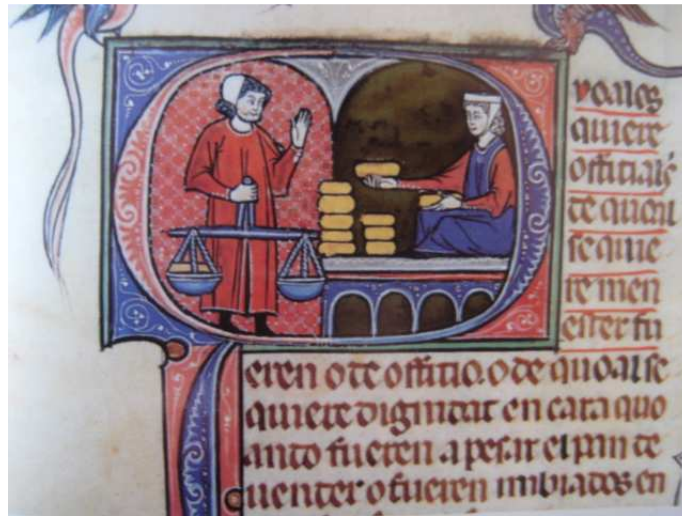 voalos
quiere
officiales
de quoal
se quie
re men
ester fu
eren o de officio. o de quoal se
quiere dignitat en cara quo
ando fueren a pesar el pan de
uender o fueren imbiados en